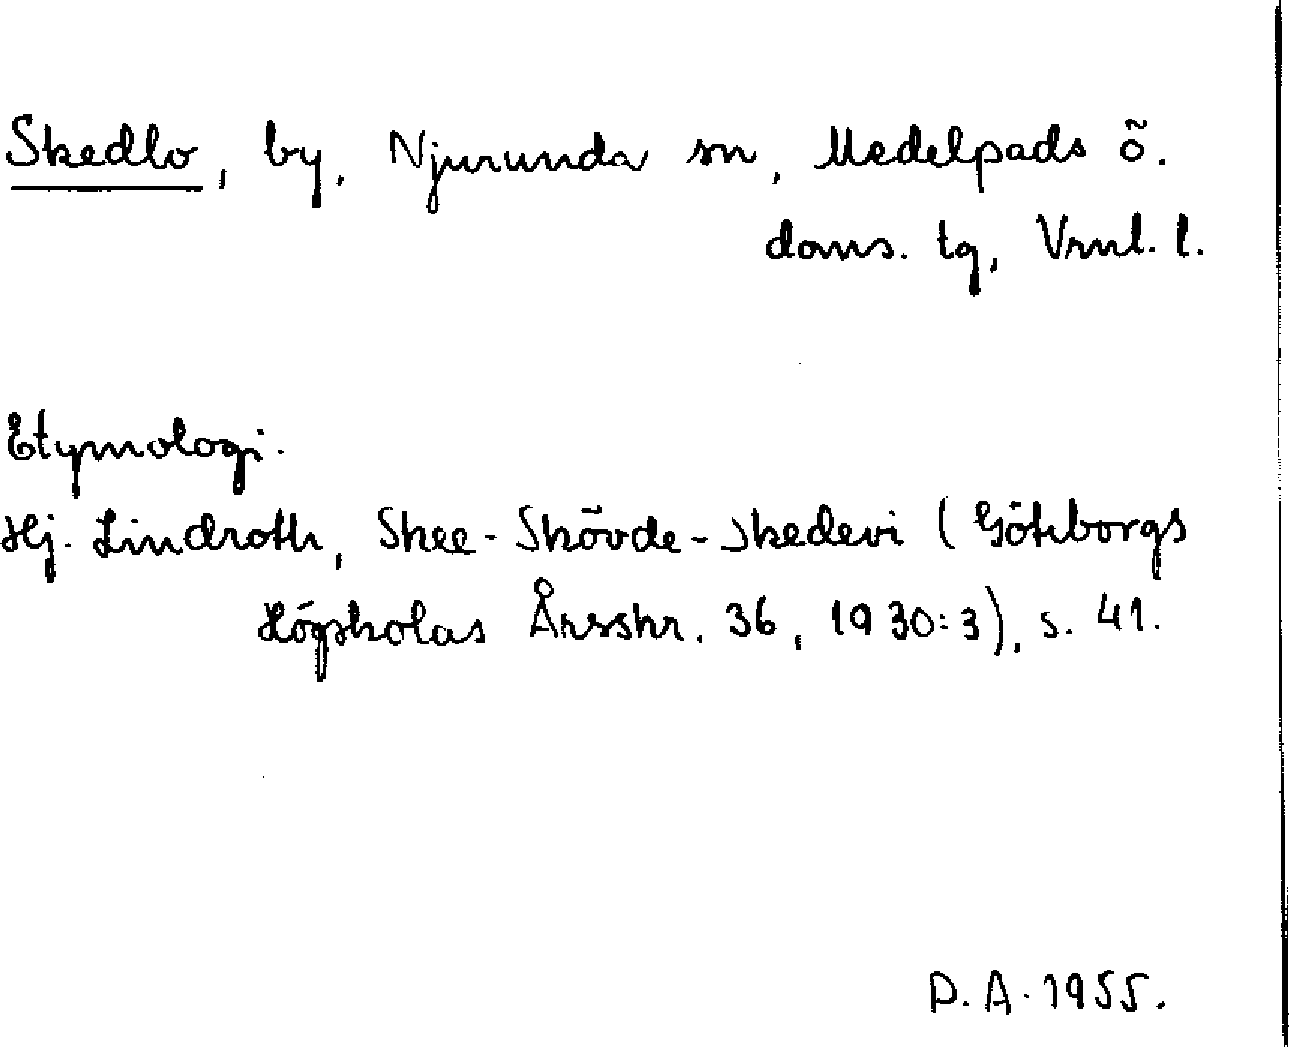 Skedlo, by, Njurunda sn, Medelpads ö.
doms. tg, Vrnl. l.
Etymologi.
Hj. Lindroth, Skee-Skövde-Skedevi (Göteborgs
Högskolas Årsskr. 36, 1930:3), s. 41.
D.A. 1955.